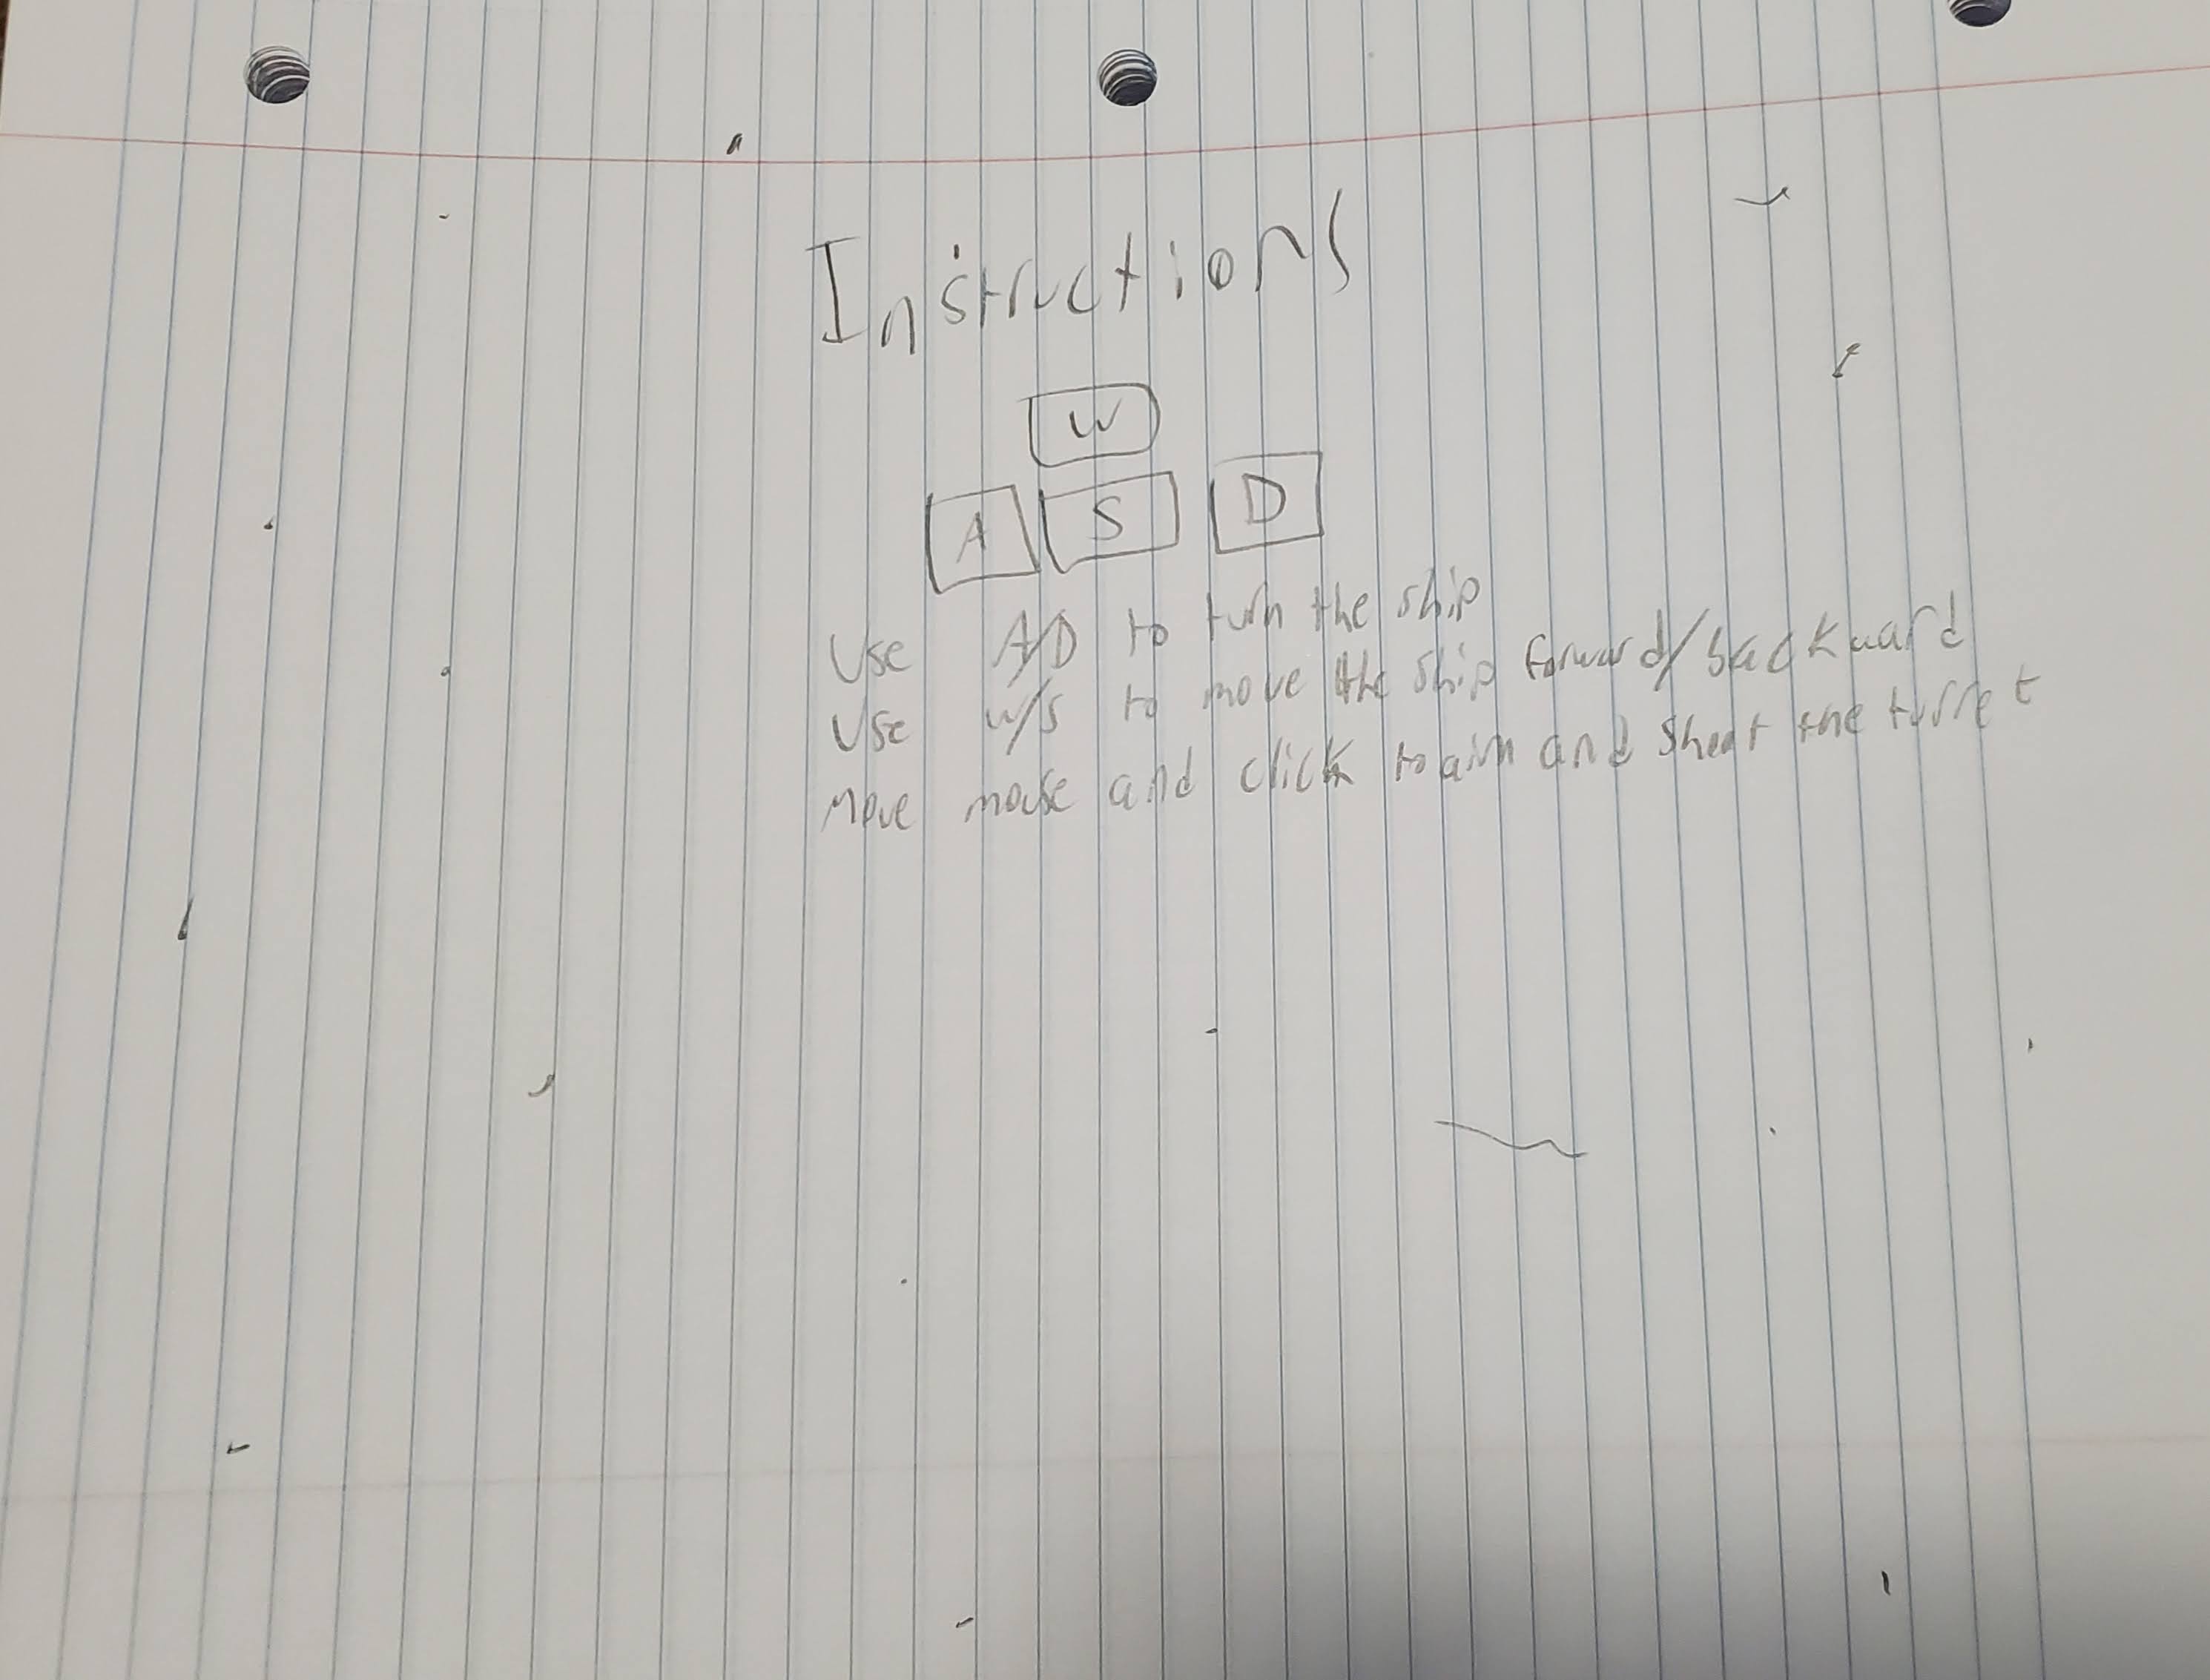 Instructions
W
A S D
Use A/D to turn the ship
Use W/S to move the ship forward/backward
Move mouse and click to aim and shoot the turret